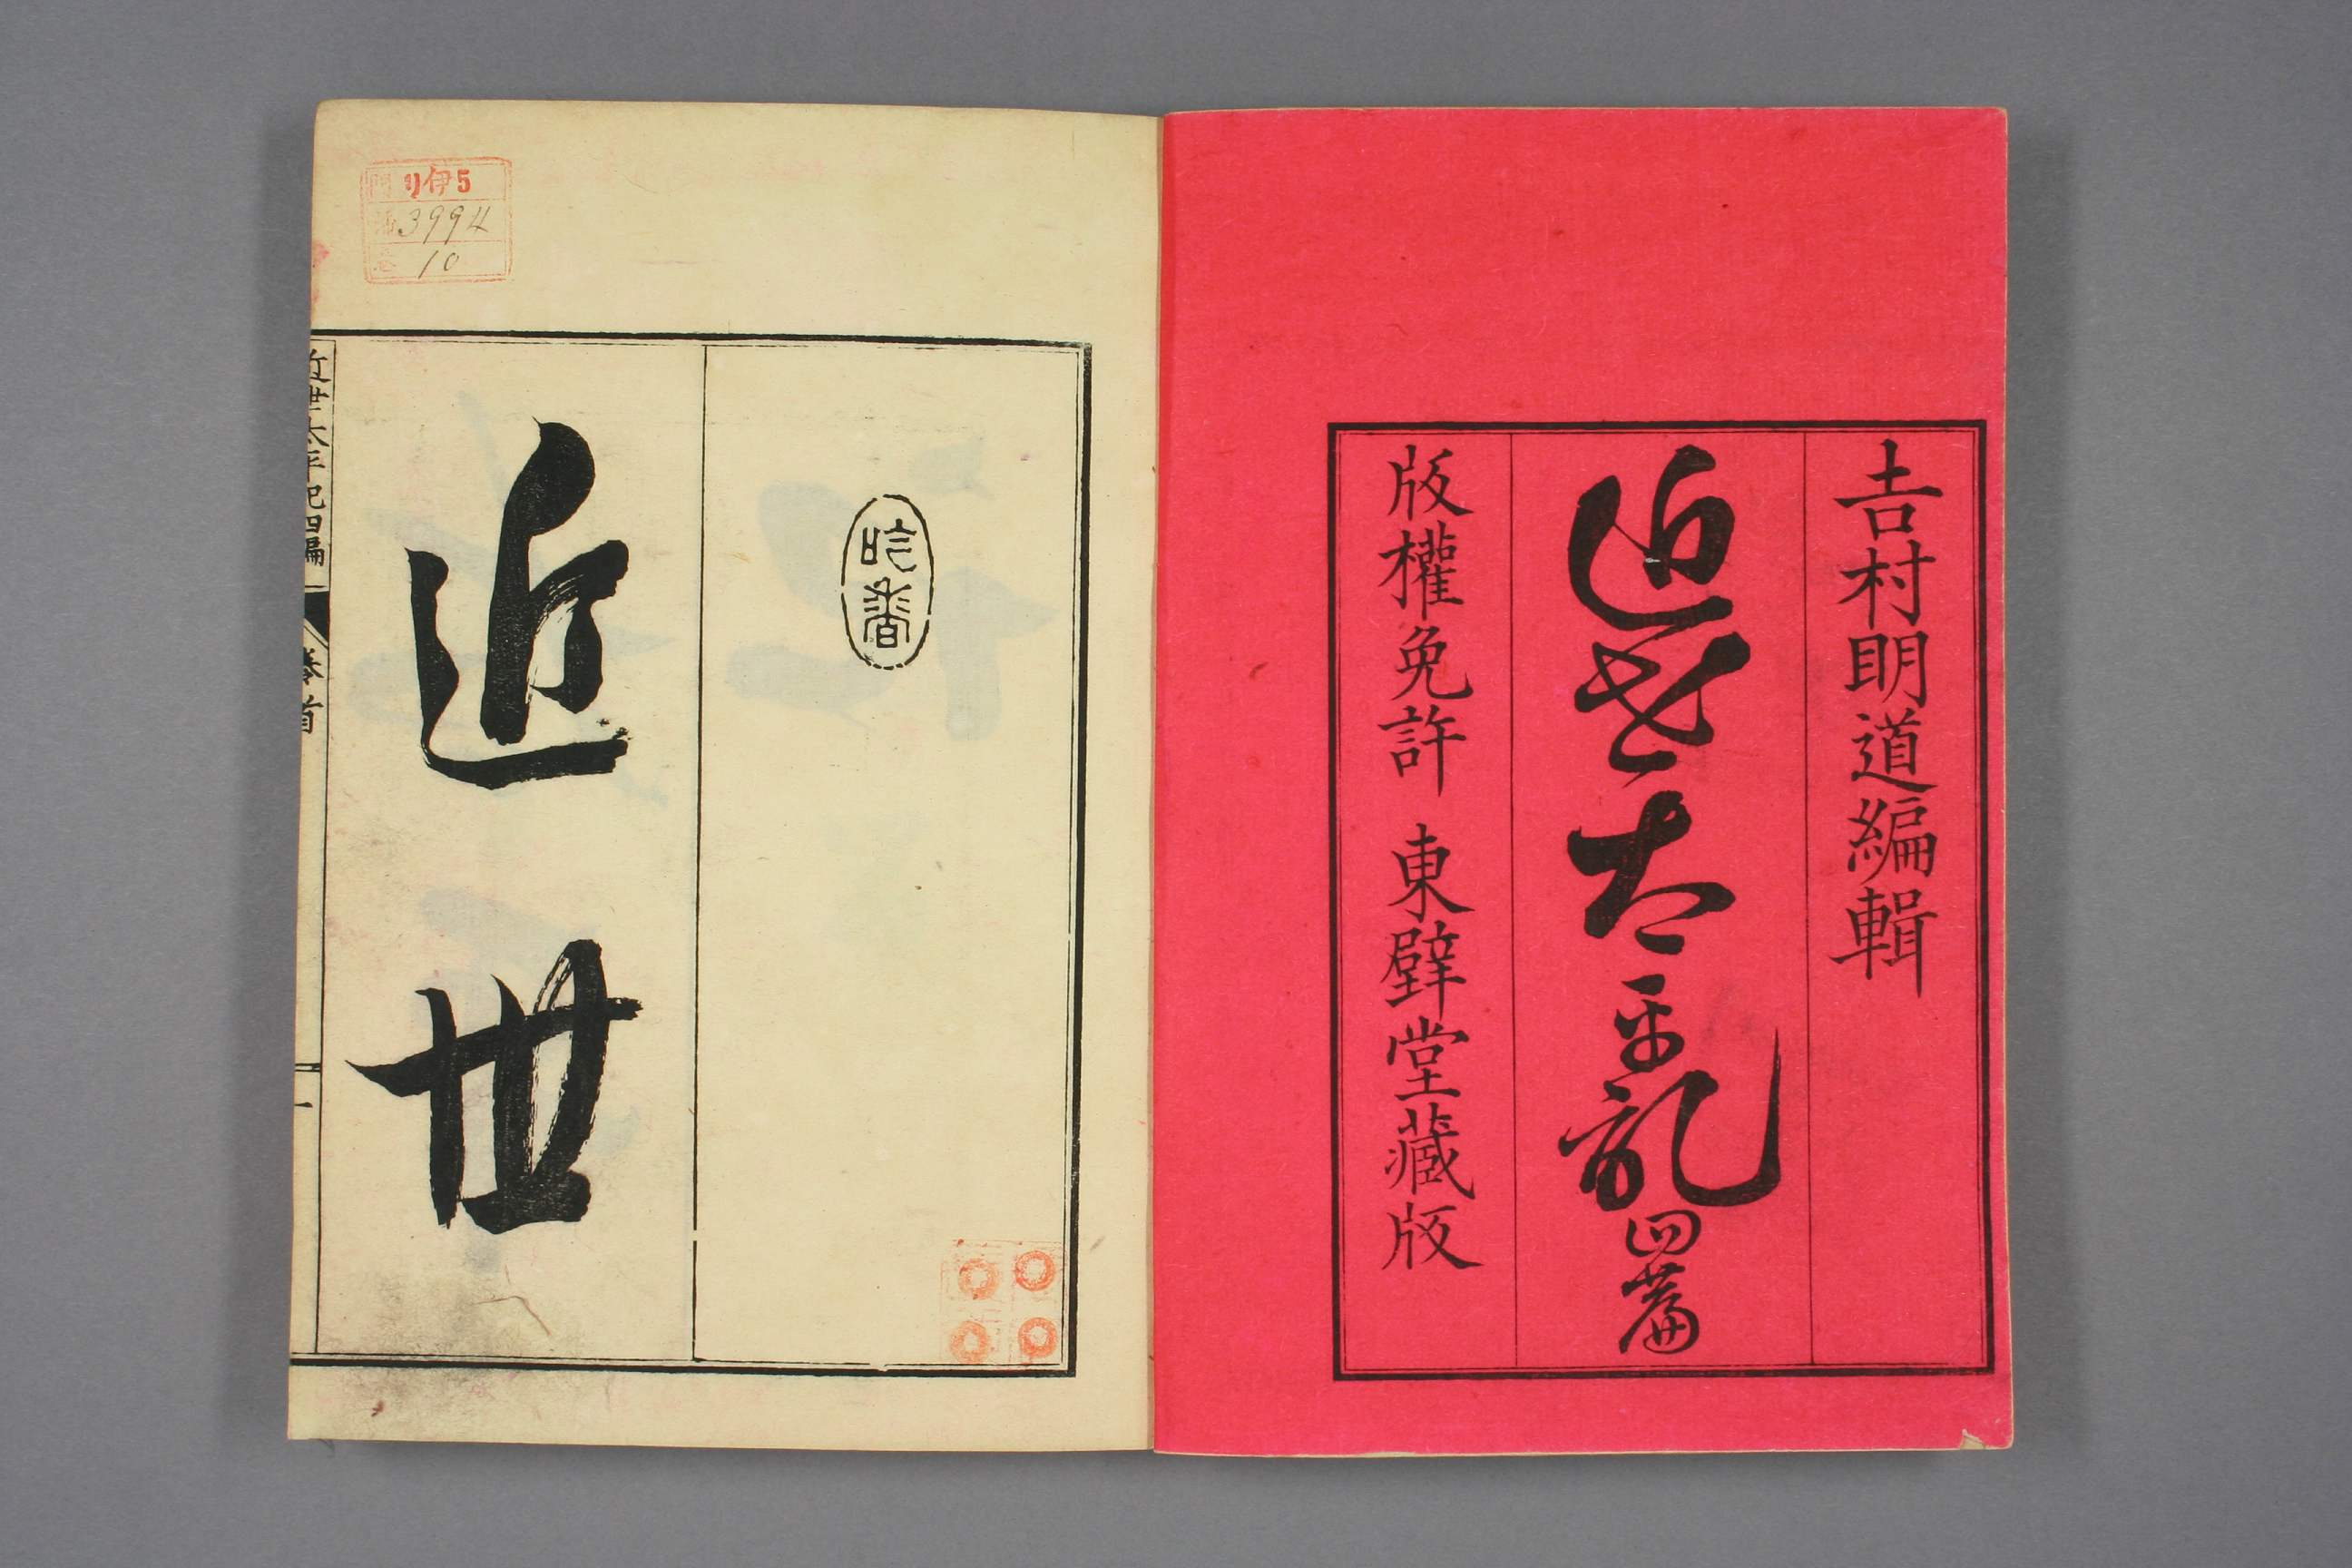 吉村明道編輯
近世太平記 四篇
版權免許 東壁堂藏版
近世
近世太平記四編 卷首 一
門 リ伊5
號 3994
卷 10